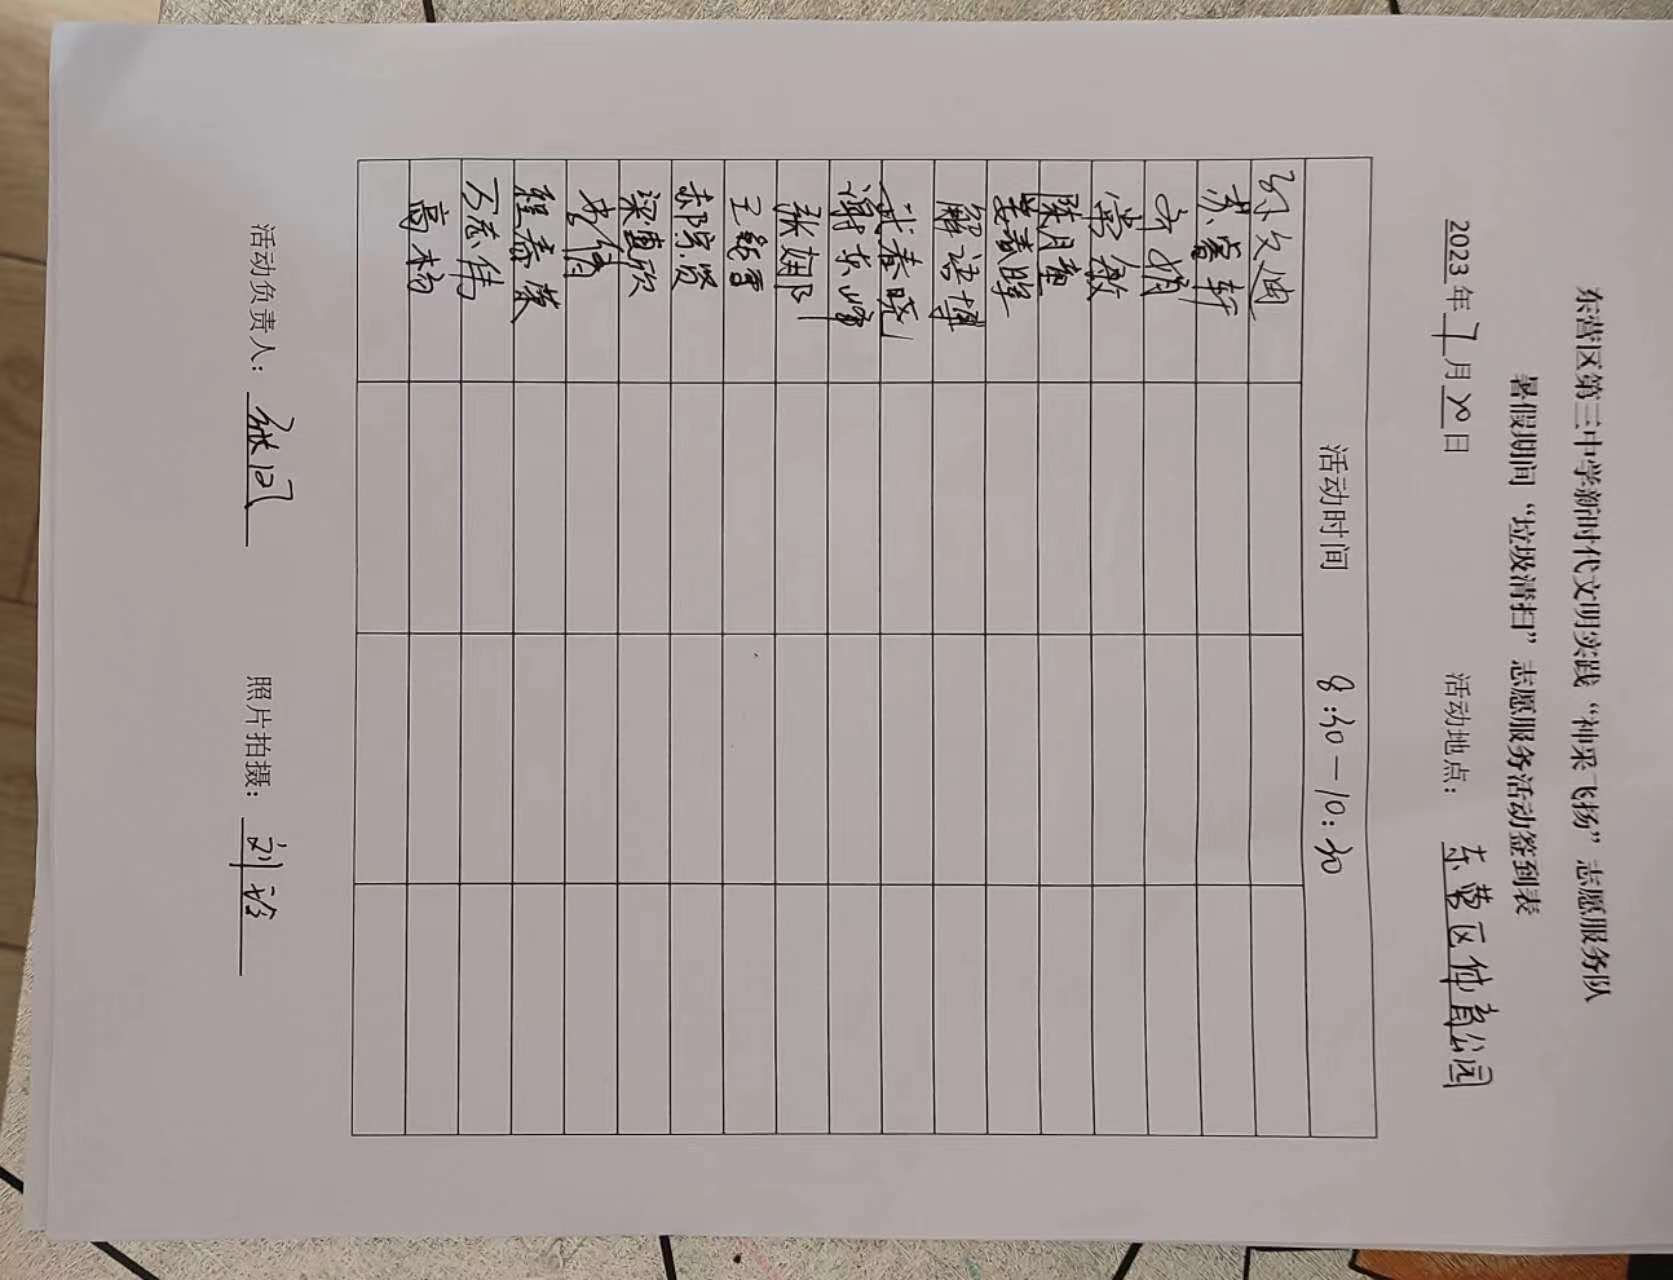 东营区第三中学新时代文明实践“神采飞扬”志愿服务队
暑假期间“垃圾清扫”志愿服务活动签到表
2023年7月20日 活动地点：东营区体育公园
活动时间 8:30-10:30
孙文迪
常敏
陈月童
姜春晖
解语博
武春晓
谢东峰
张娟
王懿雪
郝院贤
梁惠欣
程春燕
万宏伟
高杨
活动负责人： 照片拍摄：刘